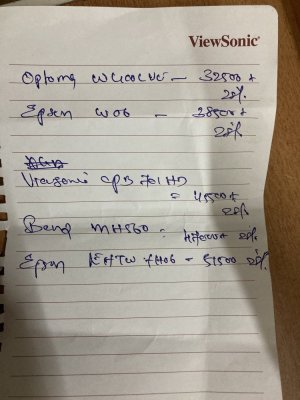 ViewSonic
Optoma W400LVe - 32500+
28%
Epson W06 - 38500+
28%
Viewsonic CPB 701HD
= 45500+
28%
Benq MH560 = 47000+ 28%
Epson EHTW FH06 = 51500 28%